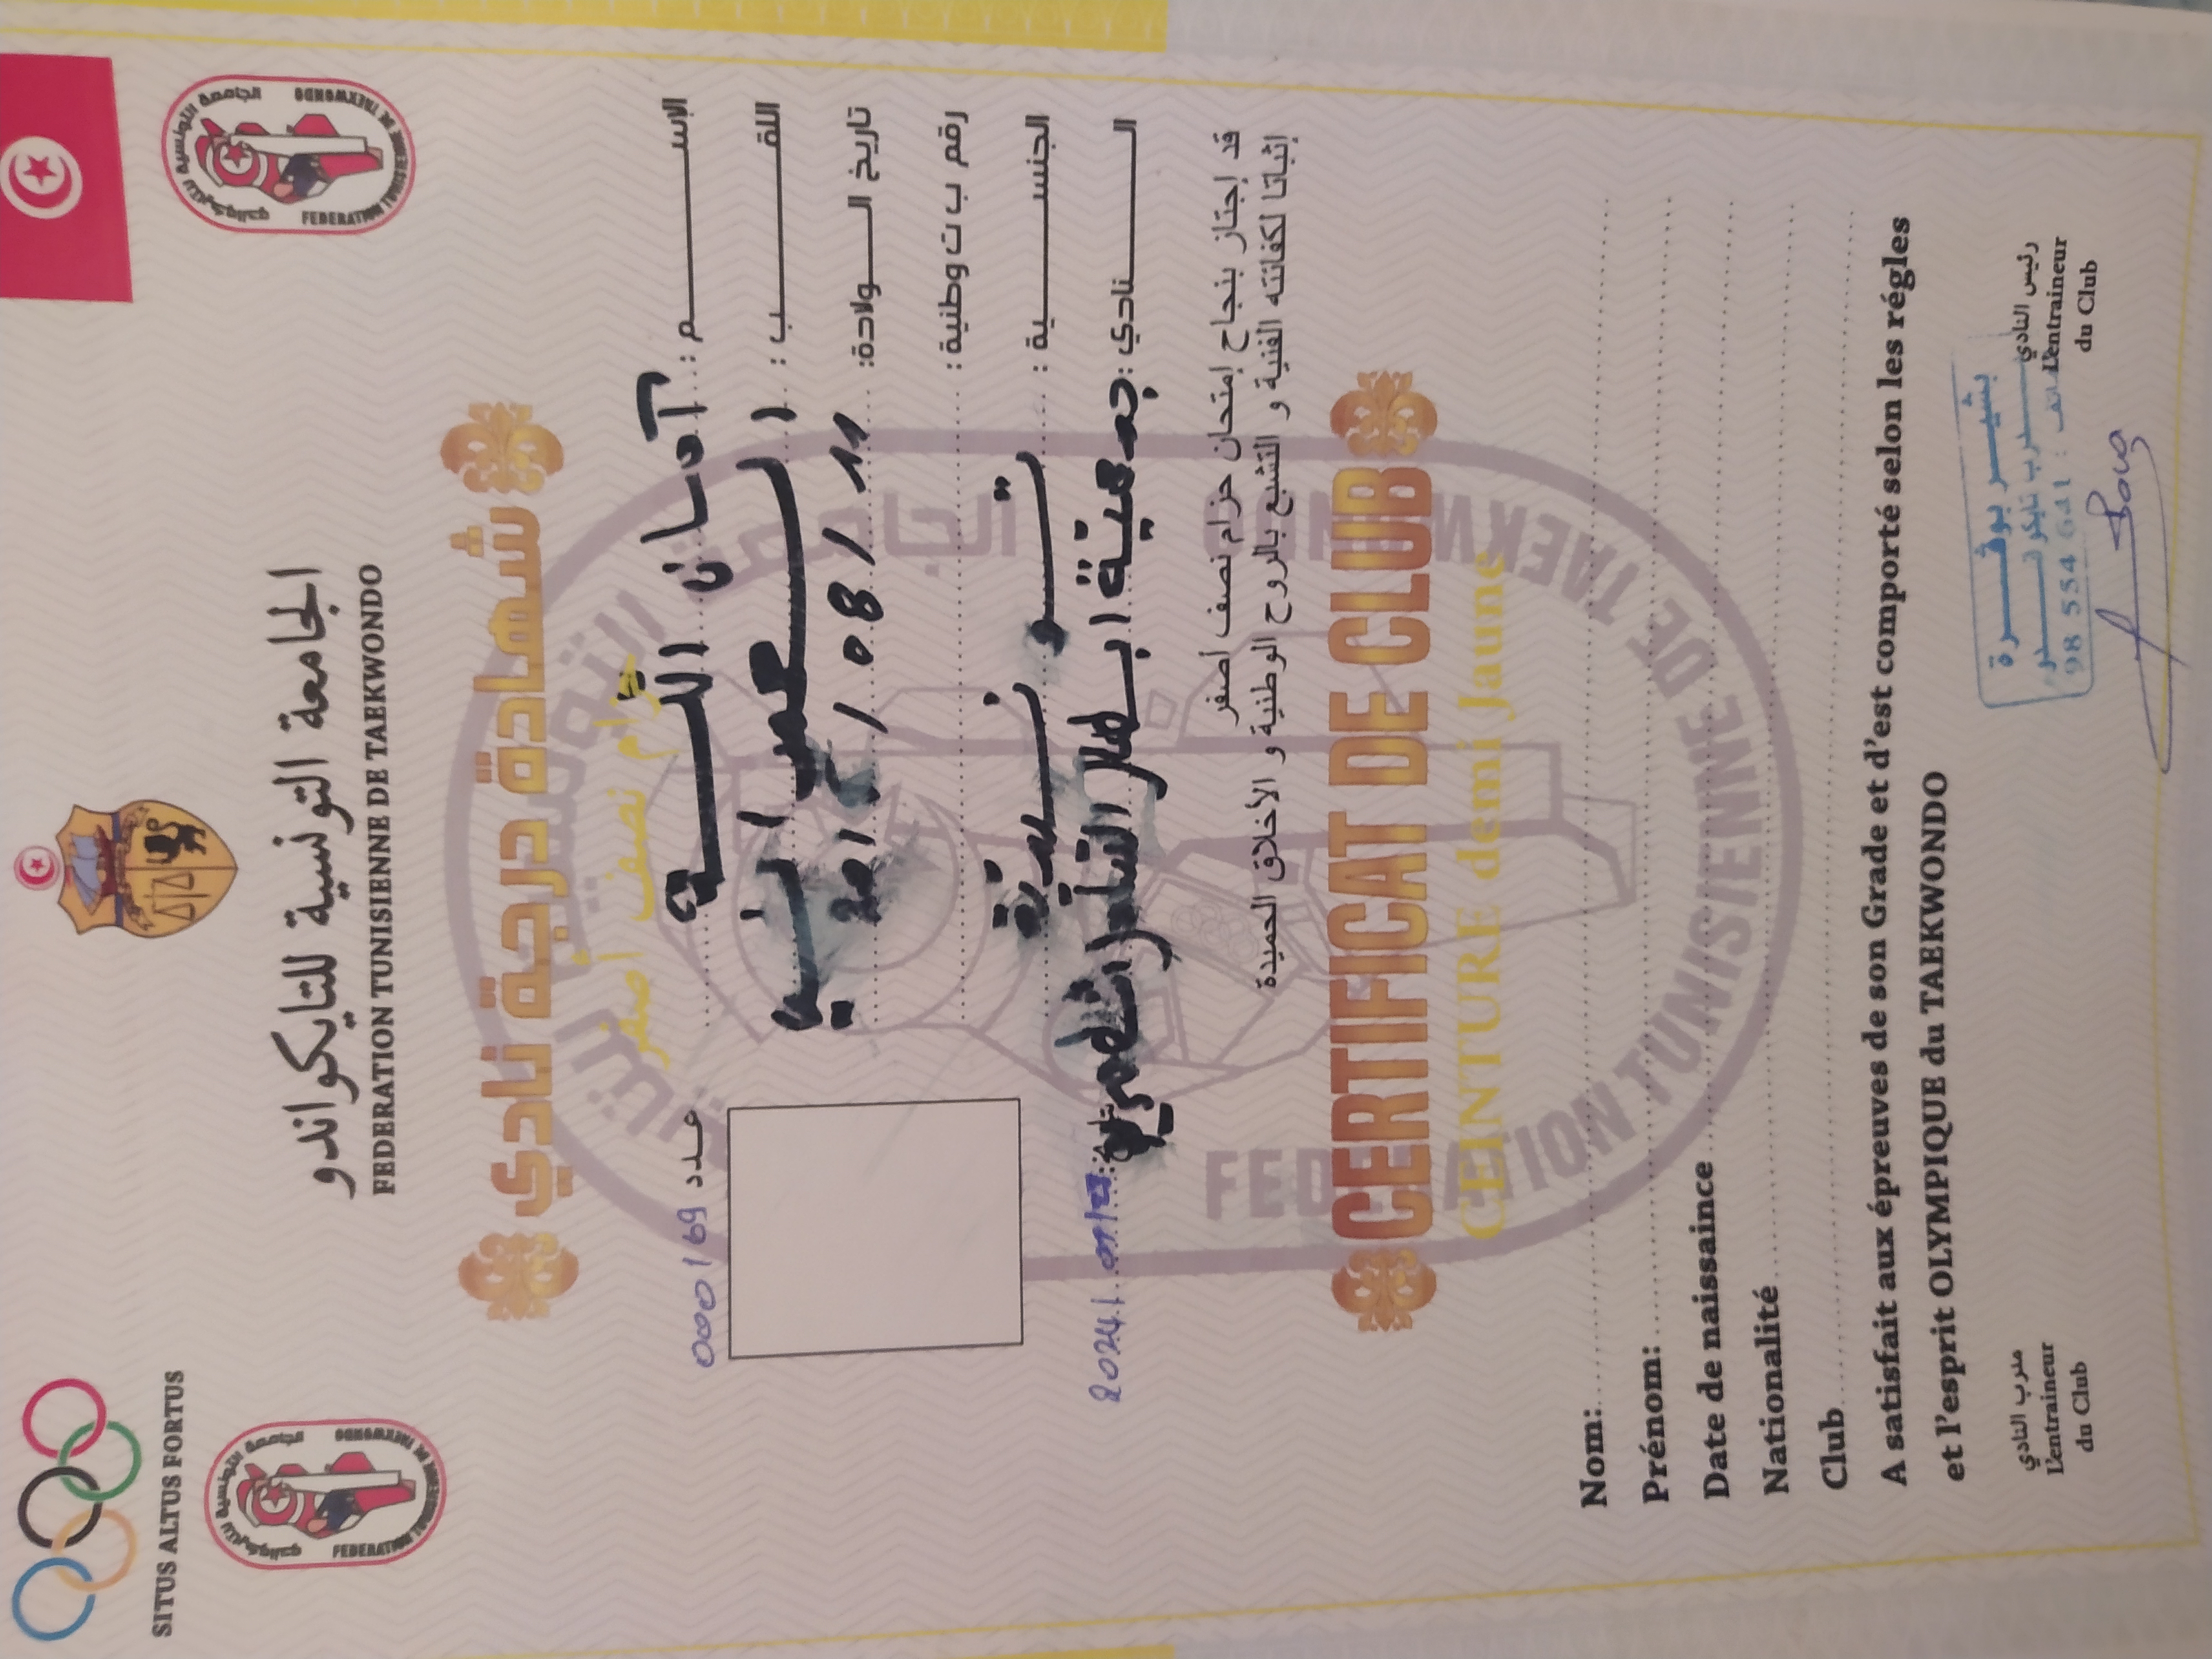 SITUS ALTUS FORTUS
الجامعة التونسية للتايكواندو
FEDERATION TUNISIENNE DE TAEKWONDO
شهادة درجة نادي
حزام نصف أصفر
عدد 0000169
الإسم: آمان الله
اللقب:
تاريخ الولادة: / 08 / 11
رقم ب ت وطنية:
الجنسية: تونسية
النادي: جمعية ابطال
2024
قد إجتاز بنجاح إمتحان حزام نصف أصفر
إثباتا لكفائته الفنية و التشبع بالروح الوطنية و الأخلاق الحميدة
CERTIFICAT DE CLUB
CEINTURE demi Jaune
Nom:
Prénom:
Date de naissaince
Nationalité
Club
A satisfait aux épreuves de son Grade et d'est comporté selon les régles
et l'esprit OLYMPIQUE du TAEKWONDO
مدرب النادي
L'entraineur
du Club
رئيس النادي
L'entraineur
du Club
98 554 641
الجامعة التونسية للتايكواندو
FEDERATION TUNISIENNE DE TAEKWONDO